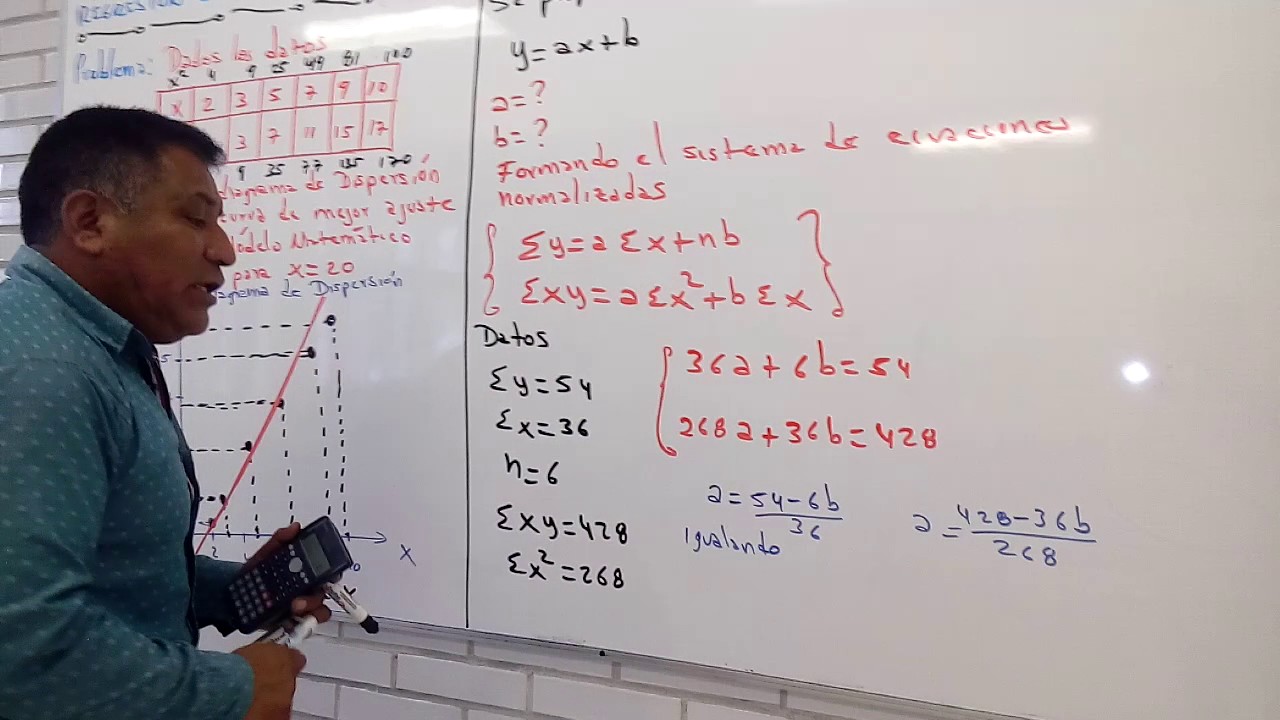 REGRESIÓN
Problema: Dados los datos
x² 4 9 25 49 81 100
x 2 3 5 7 9 10
3 7 11 15 17
9 35 77 135 170
diagrama de Dispersión
curva de mejor ajuste
Módelo Matemático
para x=20
agrama de Dispersión
2
x
y=ax+b
a=?
b=?
Formando el sistema de ecuaciones
normalizadas
Σy=aΣx+nb
Σxy=aΣx²+bΣx
Datos
Σy=54
Σx=36
n=6
Σxy=428
Σx²=268
36a+6b=54
268a+36b=428
a=54-6b/36
a=428-36b/268
Igualando